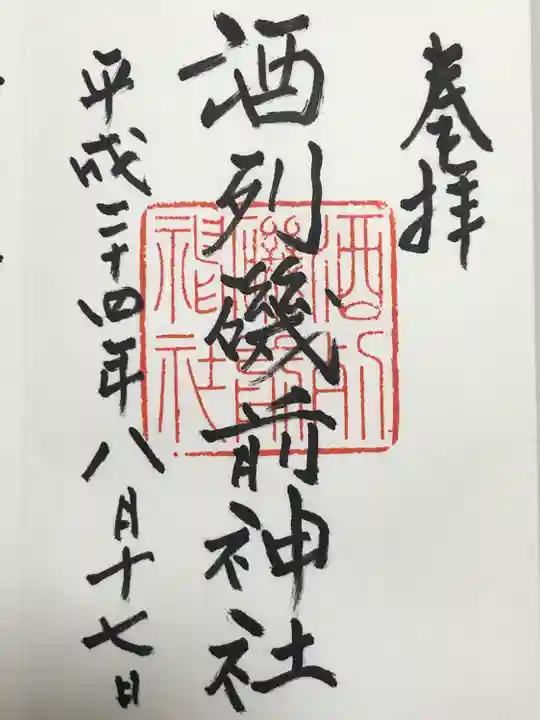 奉拝
酒列磯前神社
酒列
磯前
神社
平成二十四年八月十七日